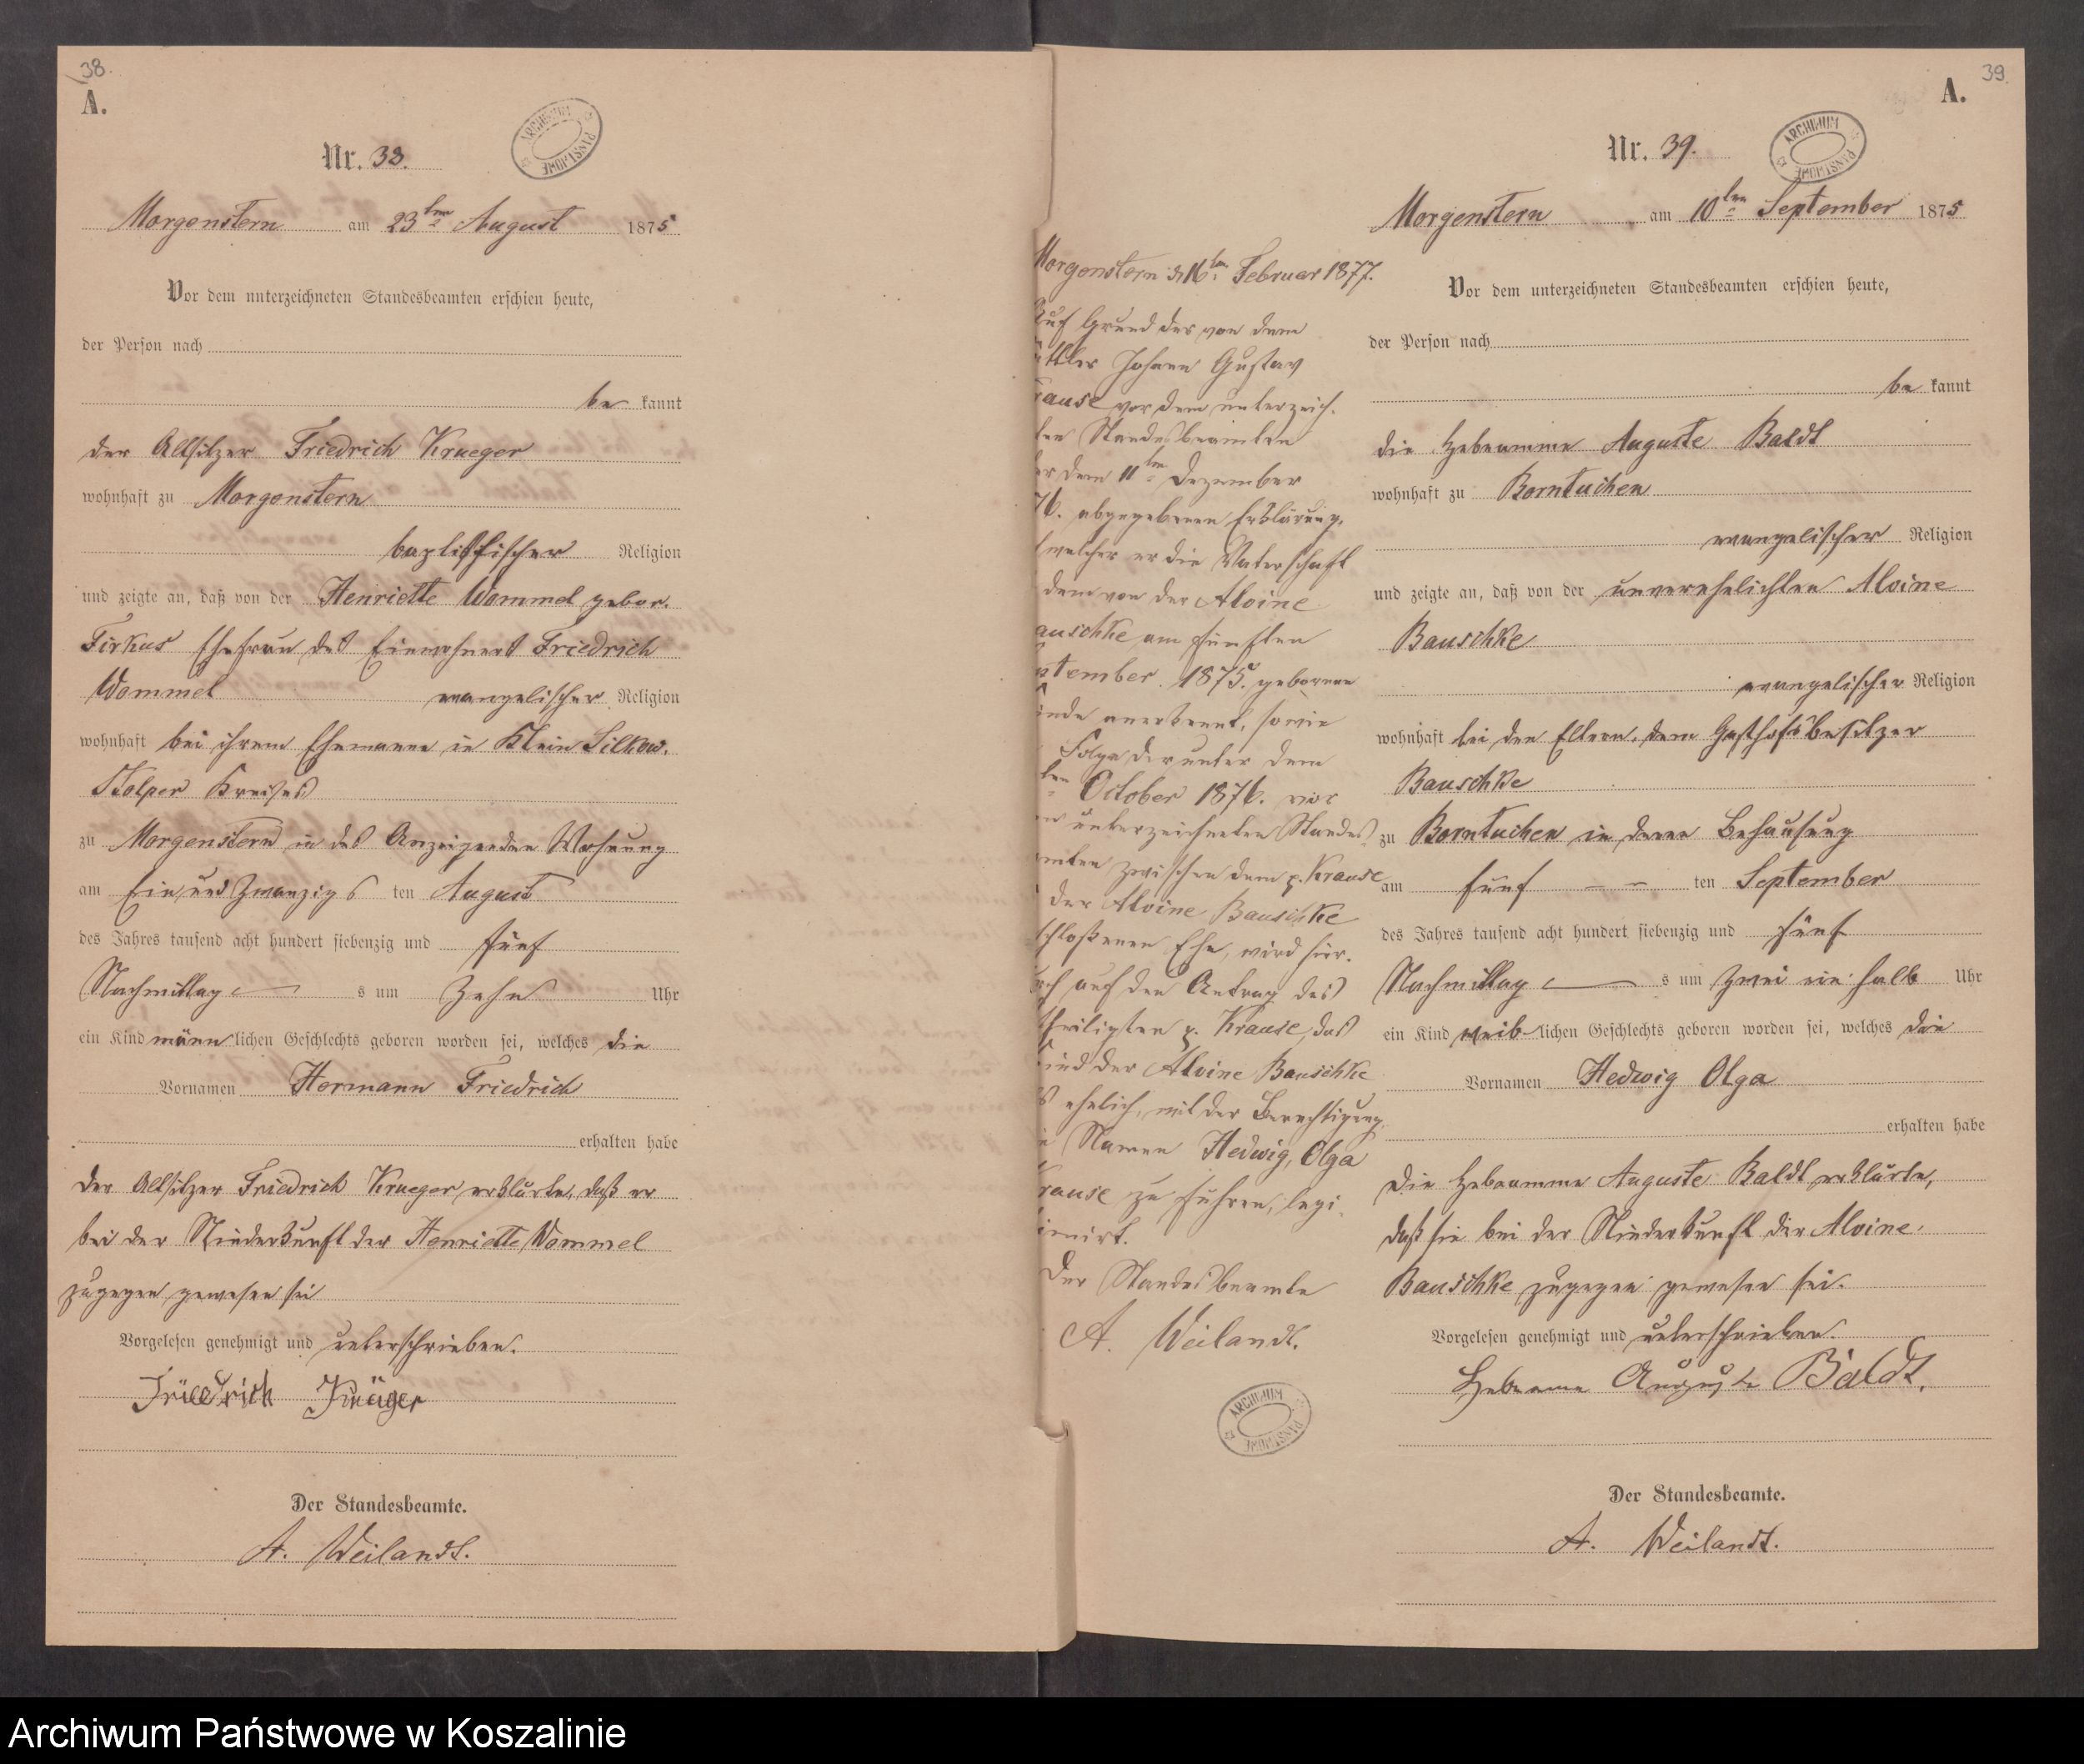 38.
A.
ARCHIWUM PAŃSTWOWE
Nr. 38.
Morgenstern am 23ten August 1875
Vor dem unterzeichneten Standesbeamten erschien heute,
der Person nach
be kannt
der Altsitzer Friedrich Krueger
wohnhaft zu Morgenstern
baptistischer Religion
und zeigte an, daß von der Henriette Wommel gebor.
Firkus Ehefrau des Einwohners Friedrich
Wommel evangelischer Religion
wohnhaft bei ihrem Ehemanne in Klein Silkow.
Stolper Kreises
zu Morgenstern in des Anzeigenden Wohnung
am Ein und Zwanzigs ten August
des Jahres tausend acht hundert siebenzig und fünf
Nachmittag s um Zehn Uhr
ein Kind männ lichen Geschlechts geboren worden sei, welches die
Vornamen Hermann Friedrich
erhalten habe
Der Altsitzer Friedrich Krueger erklärte, daß er
bei der Niederkunft der Henriette Wommel
zugegen gewesen sei
Vorgelesen genehmigt und unterschrieben.
Friedrich Krüger
Der Standesbeamte.
A. Weilandt.
39.
A.
ARCHIWUM PAŃSTWOWE
Nr. 39.
Morgenstern am 10ten September 1875
Vor dem unterzeichneten Standesbeamten erschien heute,
der Person nach
be kannt
die Hebeamme Auguste Baldt
wohnhaft zu Borntuchen
evangelischer Religion
und zeigte an, daß von der unverehelichten Alvine
Bauschke
evangelischer Religion
wohnhaft bei den Eltern, dem Gasthofsbesitzer
Bauschke
zu Borntuchen in deren Behausung
am fünf ten September
des Jahres tausend acht hundert siebenzig und fünf
Nachmittag s um Zwei ein halb Uhr
ein Kind weib lichen Geschlechts geboren worden sei, welches die
Vornamen Hedwig Olga
erhalten habe
Die Hebeamme Auguste Baldt erklärte,
daß sie bei der Niederkunft der Alvine
Bauschke zugegen gewesen sei.
Vorgelesen genehmigt und unterschrieben.
Hebeame Auguste Baldt.
Der Standesbeamte.
A. Weilandt.
Morgenstern d 16ten Februar 1877.
Auf Grund der von dem
Johann Gustav
rause vor dem unterzeich.
ten Standesbeamten
er dem 11ten Dezember
76. abgegebenen Erklärung,
welcher er die Vaterschaft
dem von der Alvine
auschke am fünften
ptember 1875. geborenen
inde anerkennt, sowie
Folge der unter dem
ten October 1876. vor
unterzeichneten Standes
amten zwischen dem p. Krause
der Alvine Bauschke
schloßenen Ehe, wird hier.
rch auf den Antrag des
theiligten p. Krause, das
ind der Alvine Bauschke
s ehelich, mit der Berechtigung,
n Namen Hedwig, Olga
rause zu führen, legi
imirt.
Der Standesbeamte
A. Weilandt.
ARCHIWUM PAŃSTWOWE
Archiwum Państwowe w Koszalinie